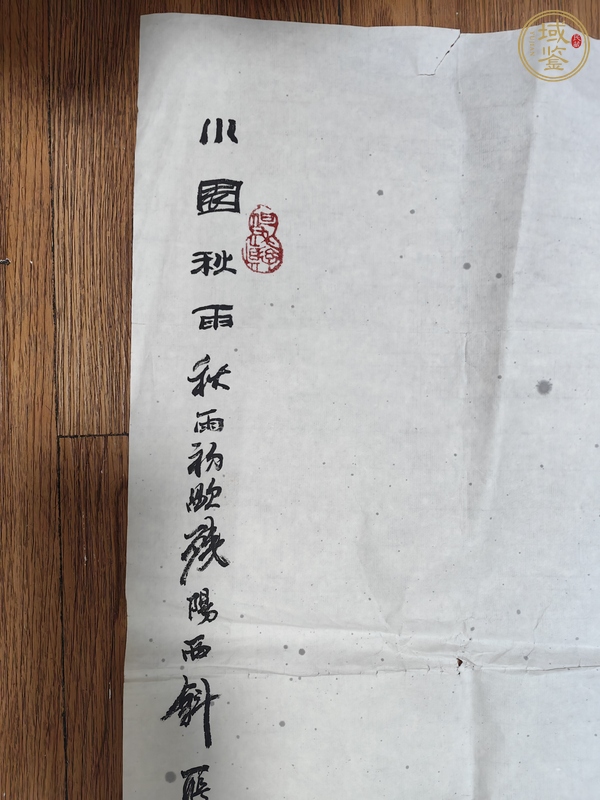 小園秋雨秋雨初歇殘陽西斜
域鉴